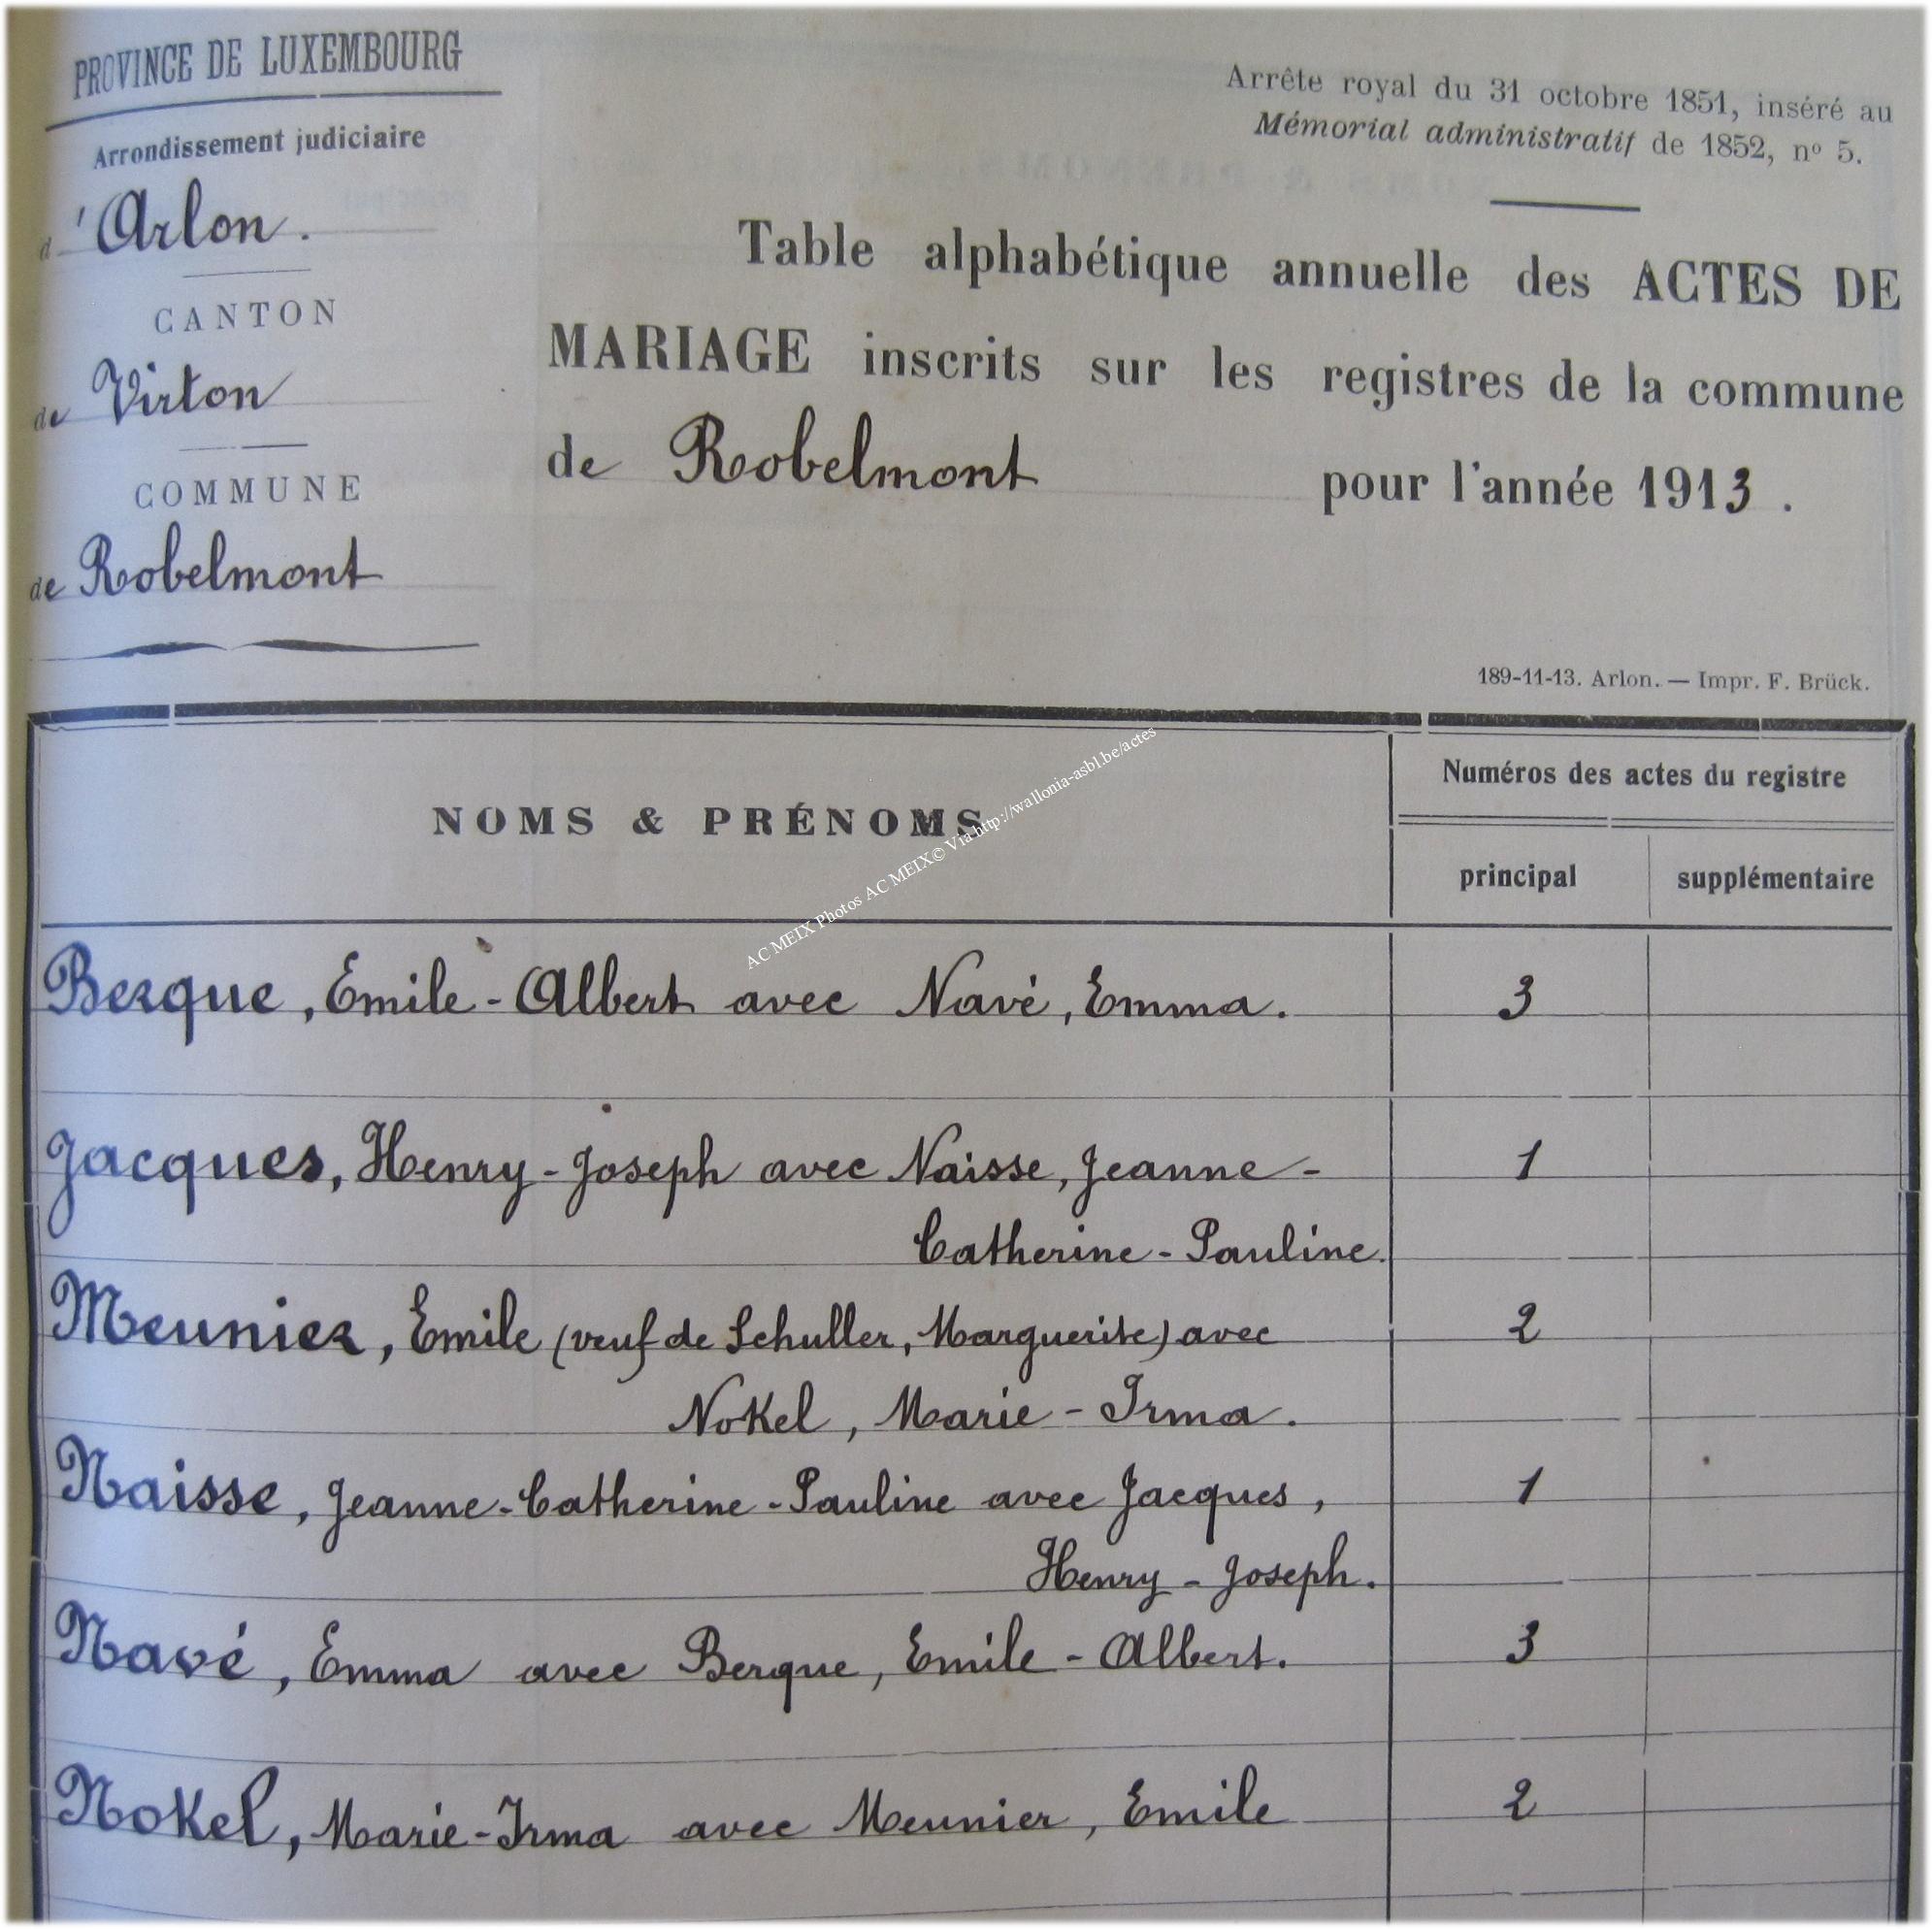 PROVINCE DE LUXEMBOURG
Arrondissement judiciaire
d'Arlon.
CANTON
de Virton
COMMUNE
de Robelmont
Arrête royal du 31 octobre 1851, inséré au
Mémorial administratif de 1852, nº 5.
Table alphabétique annuelle des ACTES DE
MARIAGE inscrits sur les registres de la commune
de Robelmont pour l'année 1913.
189-11-13. Arlon. — Impr. F. Brück.
NOMS & PRÉNOMS
Numéros des actes du registre
principal supplémentaire
AC MEIX Photos AC MEIX© Via http://wallonia-asbl.be/actes
Berque, Emile-Albert avec Navé, Emma. 3
Jacques, Henry-Joseph avec Naisse, Jeanne- 1
Catherine-Pauline.
Meunier, Emile (veuf de Schuller, Marguerite) avec 2
Nokel, Marie-Irma.
Naisse, Jeanne-Catherine-Pauline avec Jacques, 1
Henry-Joseph.
Navé, Emma avec Berque, Emile-Albert. 3
Nokel, Marie-Irma avec Meunier, Emile 2